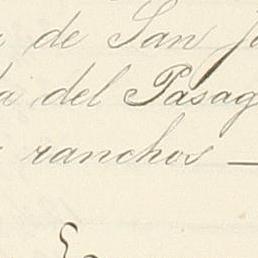 de San
del Pasag
ranchos —